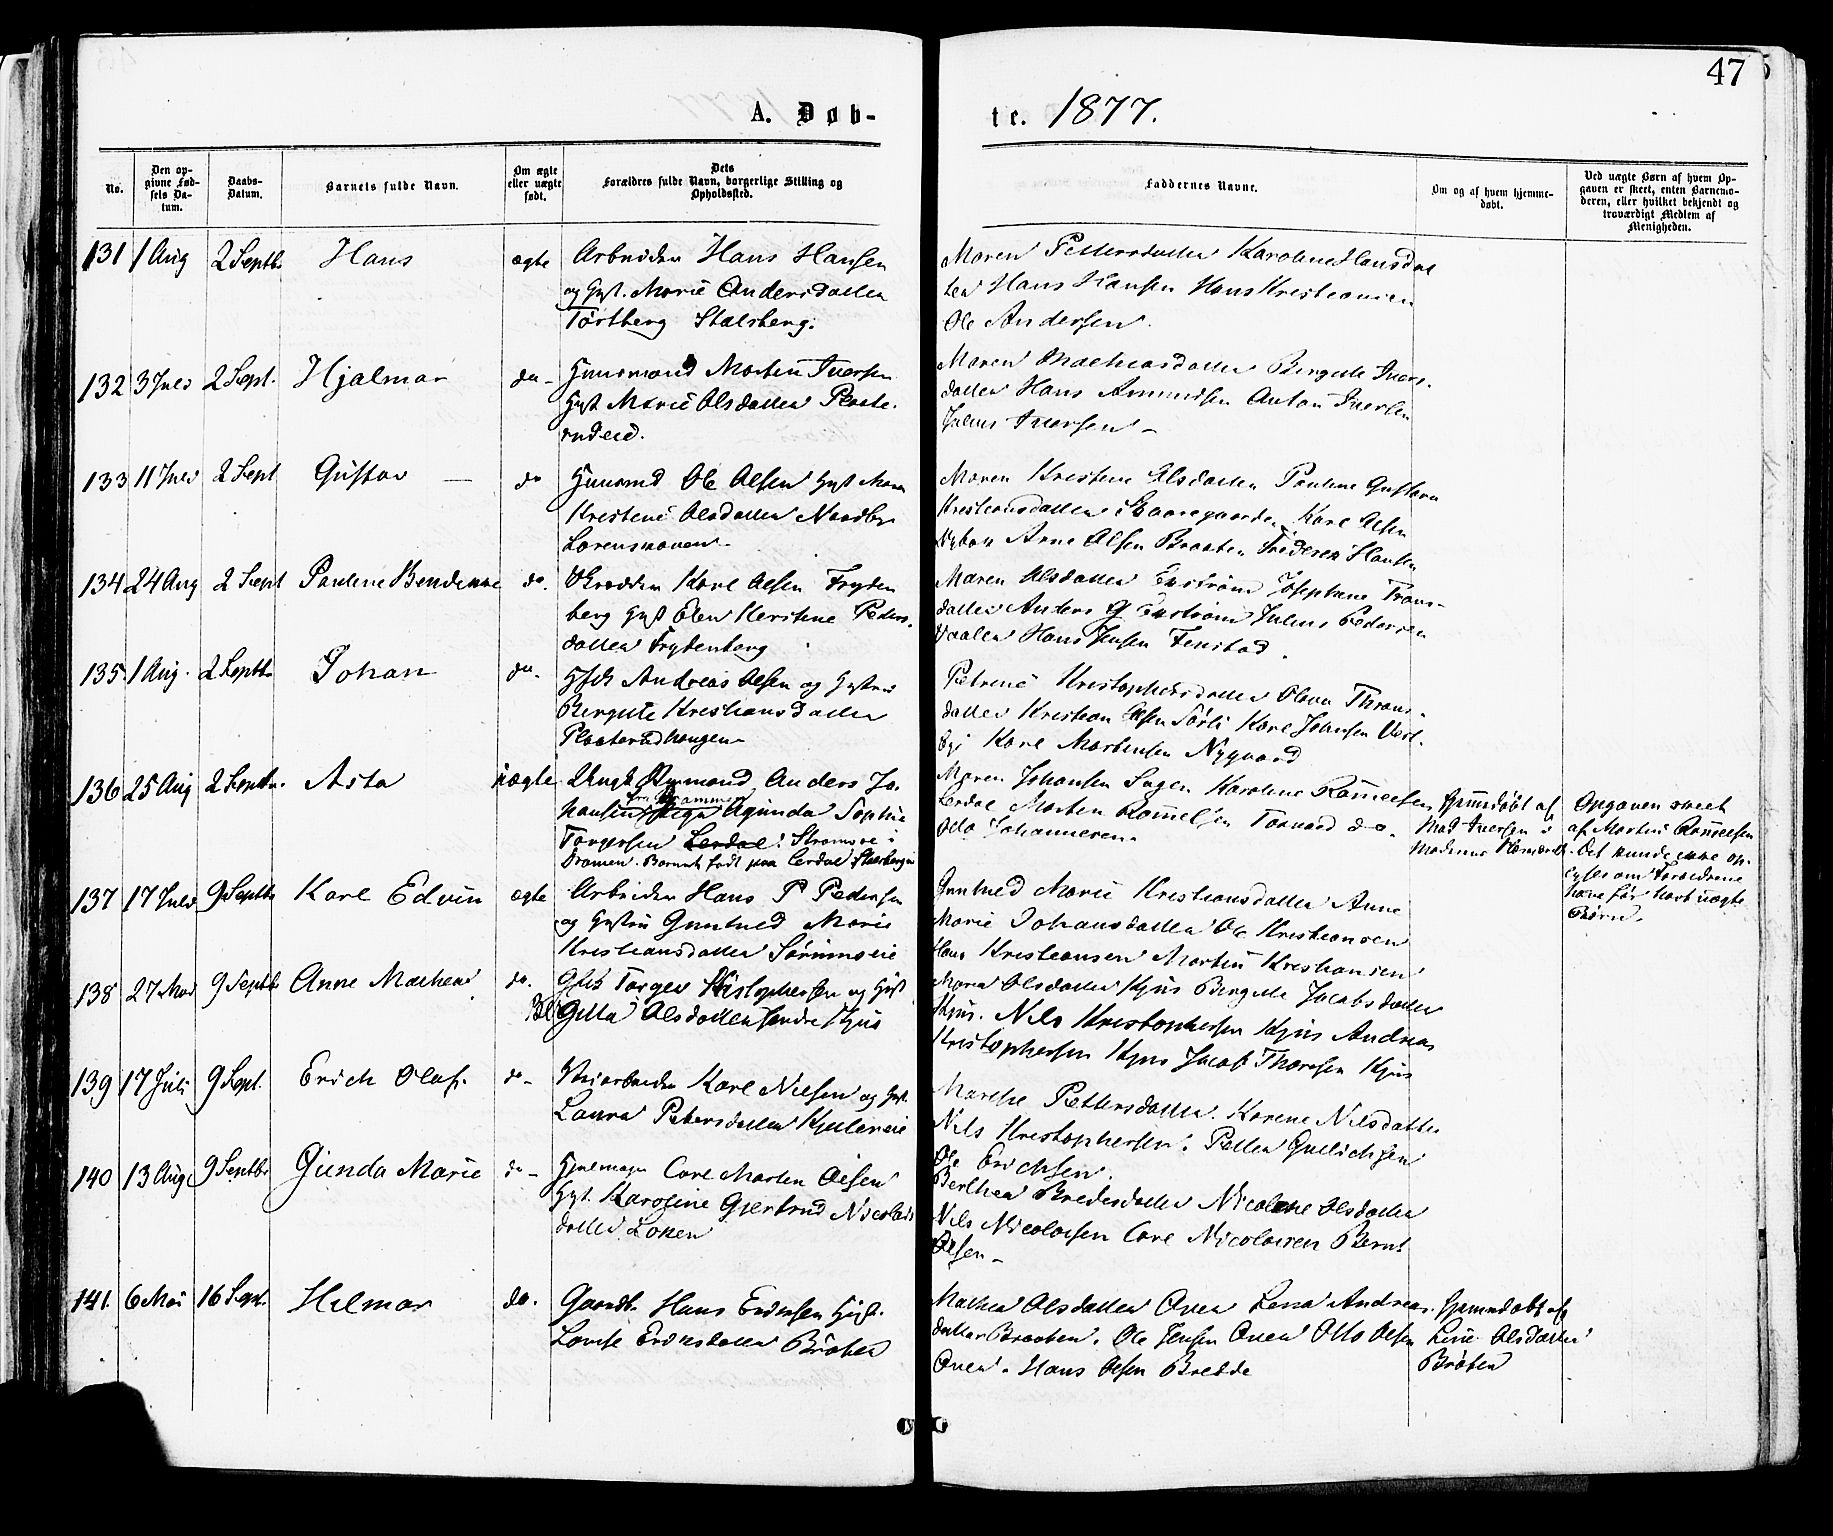 47
A. Døb-
te. 1877.
No.
Den op-
givne Fød-
sels Da-
tum.
Daabs-
Datum.
Barnets fulde Navn.
Om ægte
eller uægte
født.
Dets
Forældres fulde Navn, borgerlige Stilling og
Opholdssted.
Faddernes Navne.
Om og af hvem hjemme-
døbt.
Ved uægte Børn af hvem Op-
gaven er skeet, enten Barnemo-
deren, eller hvilket bekjendt og
troværdigt Medlem af
Menigheden.
131 1 Aug 2 Septb. Hans ægte
Arbeider Hans Hansen
og Hust. Marie Andersdatter
Tortberg Stalsberg.
Maren Pettersdatter Karoline Hansdat
ter Hans Hansen Hans Kristiansen
Ole Andersen.
132 3 Juli 2 Sept. Hjalmar do-
Huusmand Morten Iversen
Hust Marie Olsdatter Plaate-
rudeid.
Maren Mathiasdatter Bergitte Ivers-
datter Hans Amundsen Anton Iversen
Julius Iversen -
133 11 Juli 2 Sept Gustav - do
Huusmd Ole Olsen Hust Maren
Kristine Olsdatter Nordby
Maren Kristine Olsdatter Pauline Gustava
Kristiansdatter Karl Olsen
Arne Olsen Braaten Frederik Hansen
134 24 Aug 2 Sept Pauline do.
Skrædder Karl Olsen Fryden
berg Hust Elen Kirstine Peders-
datter Frydenberg
Maren Olsdatter Enstrøm Josephine Frans-
datter Anders G Enstrøm Julius Pedersen
Hans Jensen Fenstad.
135 1 Aug. 2 Septb. Johan do.
Gfdb Andreas Olsen og Hustru
Bergitte Kristiansdatter
Plaaterudhaugen-
Petrine Kristophersdatter Olava Thrans-
datter Kristian Olsen Sørli Karl Johansen Vest-
bye Karl Mortensen Nygaard
136 25 Aug 2 Septbr. Asta uægte
Ungk Anders Jo-
hansen Pige Agunda Sophie
fra Drammen
Torgersen Lerdal i Strømsøe i
Dramen. Barnet født paa Lerdal Stalsberg
Maren Johansen Karoline Rommelsen
Lerdal Morten Rommelsen Torvard do.
Otto Johannesen.
Hjemmedøbt af
Mad Iversen i
Moderens Nærværelse
Opgaven skeet
af Morten Rommelsen
Det kunde ikke op-
lyses om Forældrene
have før havt uægte
Børn.
137 17 Juli 9 Septb Karl Edvin ægte
Arbeider Hans P Pedersen
og Hustru Guntued Marie
Kristiansdatter
Guntued Marie Kristiansdatter Anne
Marie Johansdatter Ole Kristiansen
Hans Kristiansen Martin Kristiansen
138 27 Mai 9 Septb Anne Mathea do.
Gfdb Torger Kristophersen og Hust
Gitta Olsdatter Søndre Kjus
Mara Olsdatter Kjus Bergitte Jacobsdatter
Kjus. Nils Kristophersen Kjus Andreas
Kristophersen Kjus Jacob Thoresen Kjus
139 17 Juli 9 Sept. Erich Olaf. do-
Karl Nilsen og Hust.
Laura Petersdatter
Marthe Pettersdatter. Karine Nilsdatter
Nils Kristophersen. Petter Gullichsen
Ole Erichsen.
140 13 Aug 9 Septbr Gunda Marie do-
Hjulmager Carl Martin Olsen
Hust. Karoline Gjertrud Nicolais
datter Løken
Berthea Bredesdatter Nicoline Olsdatter
Nils Nicolaisen Carl Nicolaisen Bernt
Olsen-
141. 6 Mai 16 Sept. Hilmar do.
Gaardbr. Hans Eriksen Hust.
Lovise Eriksdatter Bråten
Mathea Olsdatter Oven Lena Andreas-
datter Braaten. Ole Jensen Oven Otto Olsen
Oven. Hans Olsen Bredde
Hjemmedøbt af
Line Olsdatter
Bråten